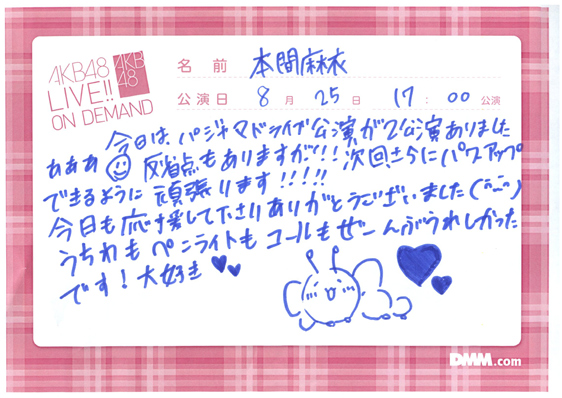 AKB48
LIVE!!
ON DEMAND
AKB
48
名 前 本間麻衣
公演日 8 月 25 日 17 : 00 公演
今日は パジャマドライブ公演が2公演ありました
ぁぁぁ 反省点もありますが!!! 次回さらにパワアップ
できるように 頑張ります!!!!!
今日も応援して下さりありがとうございました
うちわも ペンライトも コールも ぜーんぶうれしかった
です! 大好き
DMM.com